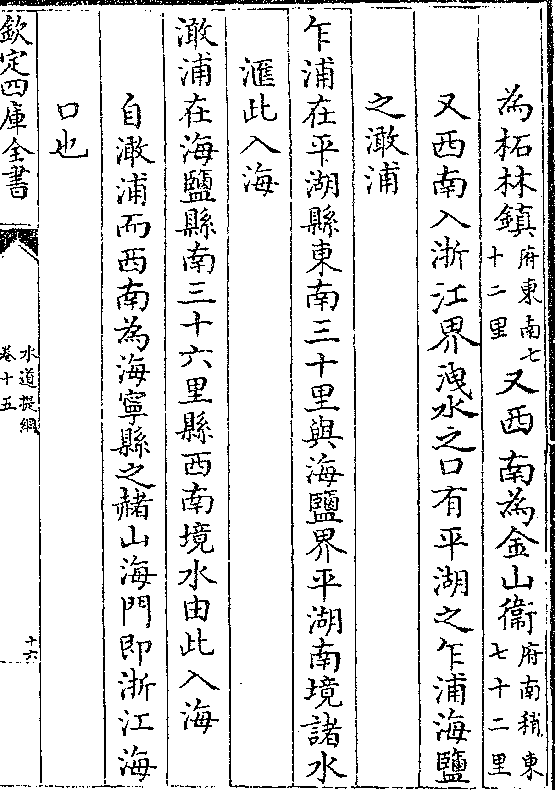 為柘林鎮府東南七十二里又西南為金山衞府南稍東七十二里
又西南入浙江界洩水之口有平湖之乍浦海鹽
之澉浦
乍浦在平湖縣東南三十里與海鹽界平湖南境諸水
滙此入海
澉浦在海鹽縣南三十六里縣西南境水由此入海
自澉浦而西南為海寧縣之赭山海門即浙江海
口也
欽定四庫全書
水道提綱
卷十五
十六